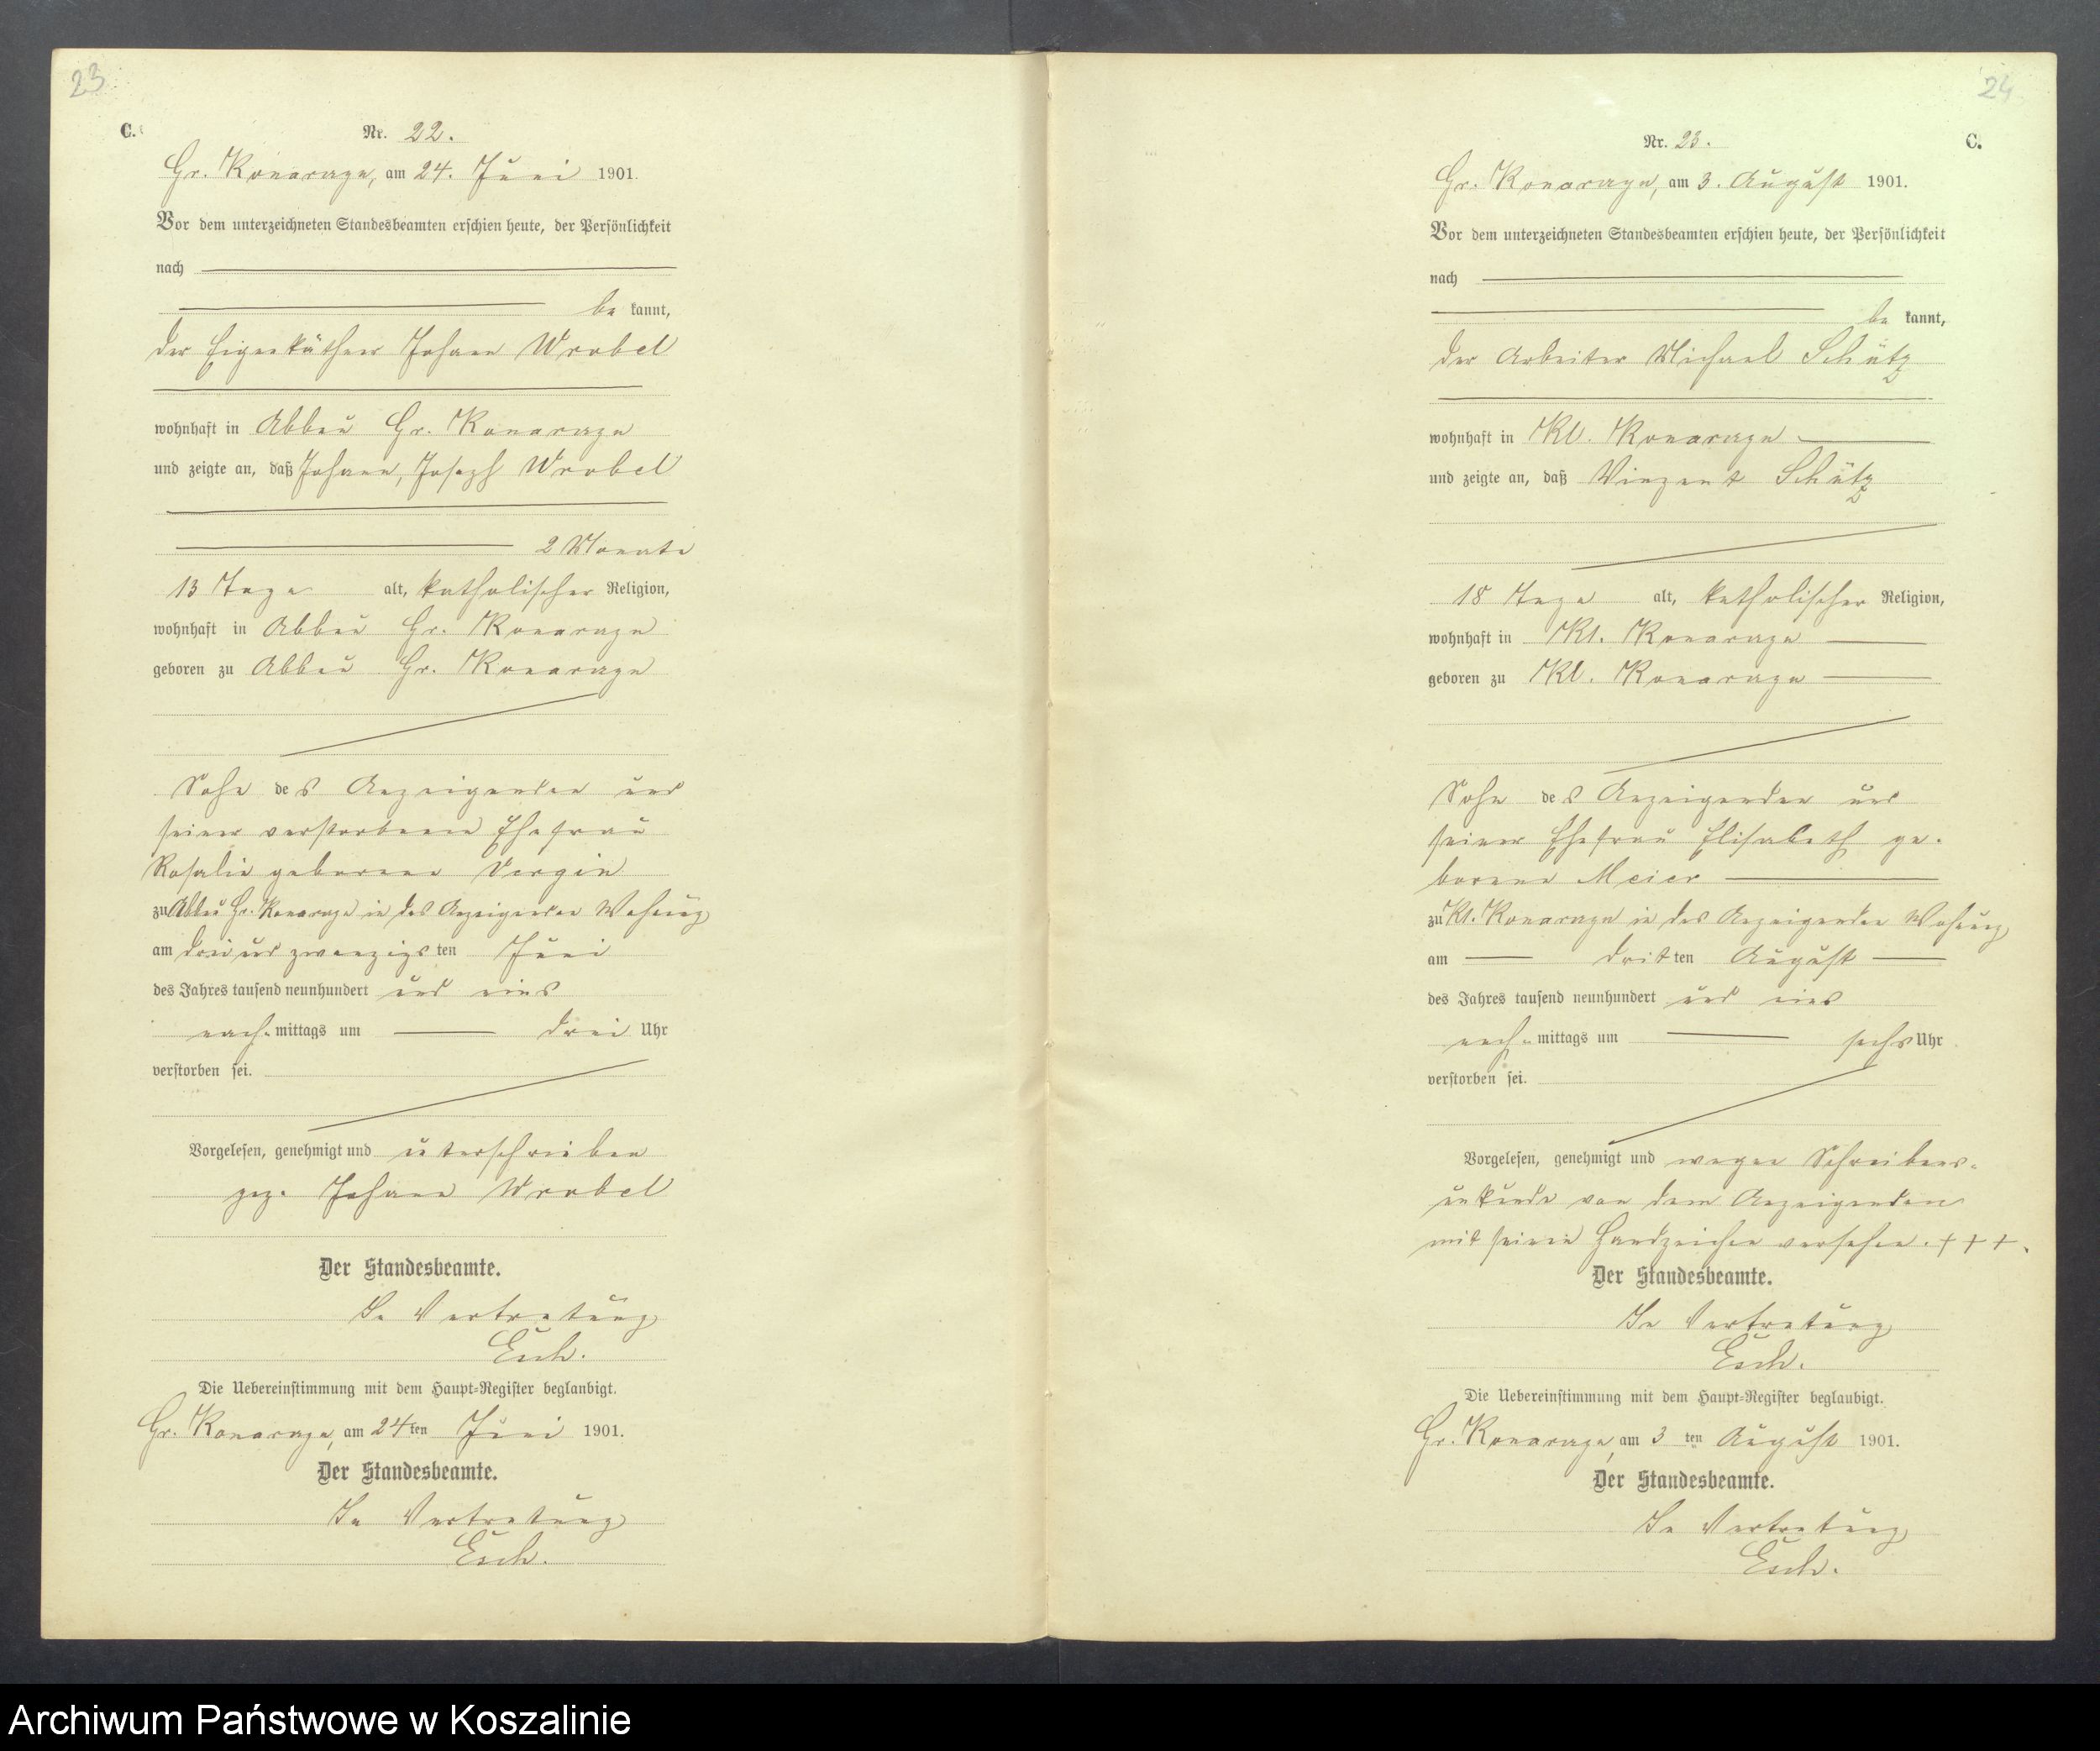 23
C.
Nr. 22.
Gr. Konarczyn, am 24. Juni 1901.
Vor dem unterzeichneten Standesbeamten erschien heute, der Persönlichkeit
nach
be kannt,
der Eigenkäthner Johann Wrobel
wohnhaft in Abbau Gr. Konarczyn
und zeigte an, daß Johann, Joseph Wrobel
2 Monate
13 Tage alt, katholischer Religion,
wohnhaft in Abbau Gr. Konarczyn
geboren zu Abbau Gr. Konarczyn
Sohn des Anzeigenden und
seiner verstorbenen Ehefrau
Rosalie geborene Vergin
zu Abbau Gr. Konarczyn in des Anzeigenden Wohnung
am drei und zwanzigsten Juni
des Jahres tausend neunhundert und eins
nach mittags um drei Uhr
verstorben sei.
Vorgelesen, genehmigt und unterschrieben
gez. Johann Wrobel
Der Standesbeamte.
In Vertretung
Esch.
Die Uebereinstimmung mit dem Haupt-Register beglaubigt.
Gr. Konarczyn, am 24ten Juni 1901.
Der Standesbeamte.
In Vertretung
Esch.
24
Nr. 23.
C.
Gr. Konarczyn, am 3. August 1901.
Vor dem unterzeichneten Standesbeamten erschien heute, der Persönlichkeit
nach
be kannt,
der Arbeiter Michael Schütz
wohnhaft in Kl. Konarczyn
und zeigte an, daß Vinzent Schütz
18 Tage alt, katholischer Religion,
wohnhaft in Kl. Konarczyn
geboren zu Kl. Konarczyn
Sohn des Anzeigenden und
seiner Ehefrau Elisabeth ge-
borene Meier
zu Kl. Konarczyn in des Anzeigenden Wohnung
am dritten August
des Jahres tausend neunhundert und eins
nach mittags um sechs Uhr
verstorben sei.
Vorgelesen, genehmigt und wegen Schreibens-
unkunde von dem Anzeigenden
mit seinem Handzeichen versehen. +++.
Der Standesbeamte.
In Vertretung
Esch.
Die Uebereinstimmung mit dem Haupt-Register beglaubigt.
Gr. Konarczyn, am 3 ten August 1901.
Der Standesbeamte.
In Vertretung
Esch.
Archiwum Państwowe w Koszalinie